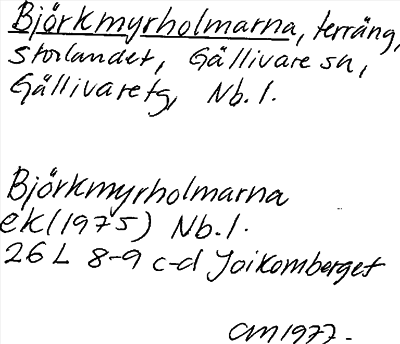 Björkmyrholmarna, terräng,
Storlandet, Gällivare sn,
Gällivaretg, Nb.l.
Björkmyrholmarna
ek(1975) Nb.l.
26 L 8-9 c-d Joikomberget
CM1977.